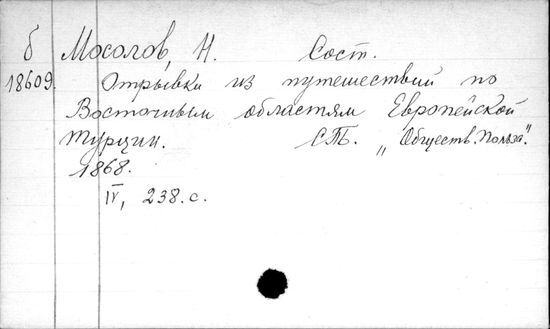 б Мосолов, Н. Сост.
18609 Отрывки из путешествий по
Восточным областям Европейской
Турции. СПб. „Обществ. Польза".
1868.
IV, 238 с.